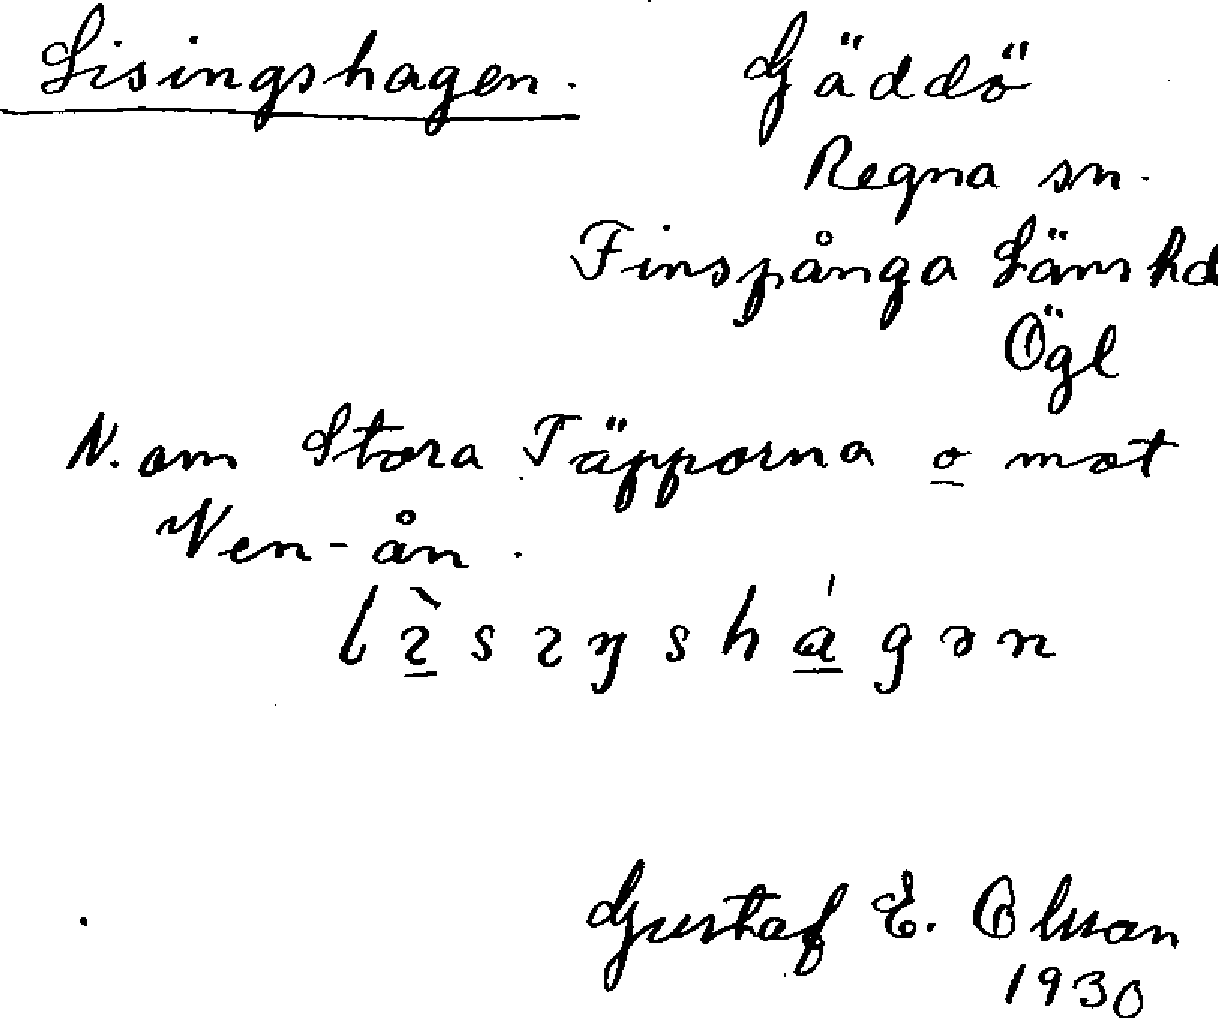 Lisingshagen. Gäddö
Regna sn.
Finspånga Läns hd
Ögl
N. om Stora Täpporna o mot
Ven-ån.
Gustaf E. Olsson
1930